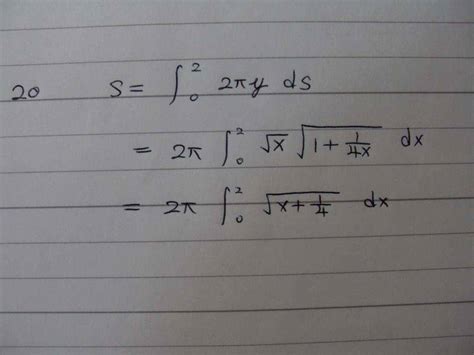 20 S = ∫₀² 2πy ds
= 2π ∫₀² √x √(1 + 1/4x) dx
= 2π ∫₀² √(x + 1/4) dx